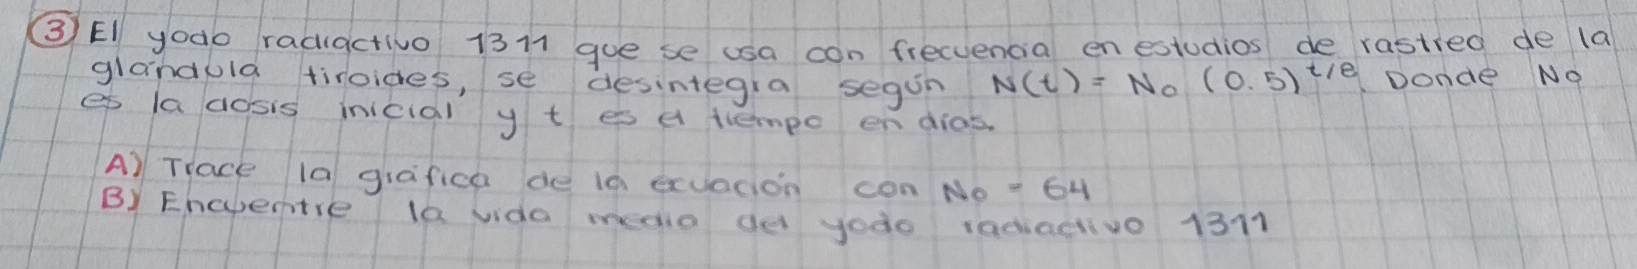 ③ El yodo radiactivo 1311 que se usa con frecuencia en estudios de rastreo de la
glándula tiroides, se desintegra según N(t) = N₀ (0.5)^t/8. Donde N₀
es la dosis inicial y t es el tiempo en días.
A) Trace la gráfica de la ecuación con N₀ = 64
B) Encuentre la vida media del yodo radiactivo 1311